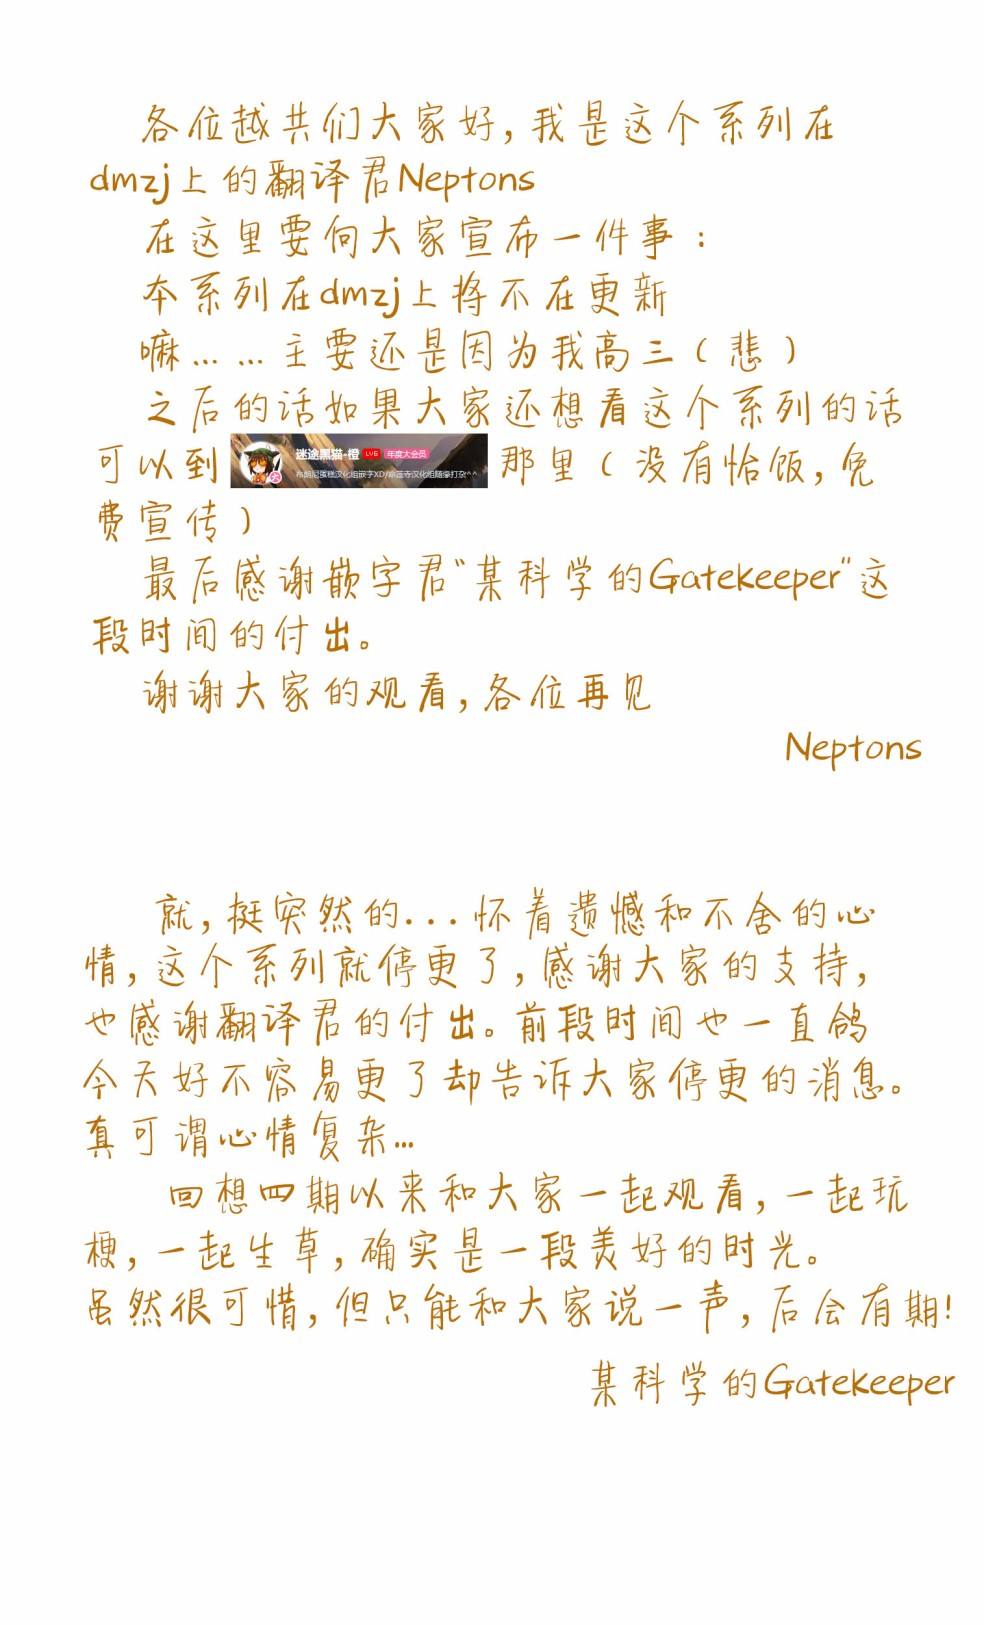 各位越共们大家好,我是这个系列在
dmzj上的翻译君Neptons
在这里要向大家宣布一件事:
本系列在dmzj上将不在更新
嘛……主要还是因为我高三(悲)
之后的话如果大家还想看这个系列的话
可以到 迷途黑猫-橙 LV5 年度大会员 那里(没有恰饭,免
布朗尼蛋糕汉化组嵌字XD/ 汉化组随缘打杂^^
费宣传)
最后感谢嵌字君"某科学的Gatekeeper"这
段时间的付出。
谢谢大家的观看,各位再见
Neptons
就,挺突然的...怀着遗憾和不舍的心
情,这个系列就停更了,感谢大家的支持,
也感谢翻译君的付出。前段时间也一直鸽
今天好不容易更了却告诉大家停更的消息。
真可谓心情复杂...
回想四期以来和大家一起观看,一起玩
梗,一起生草,确实是一段美好的时光。
虽然很可惜,但只能和大家说一声,后会有期!
某科学的Gatekeeper